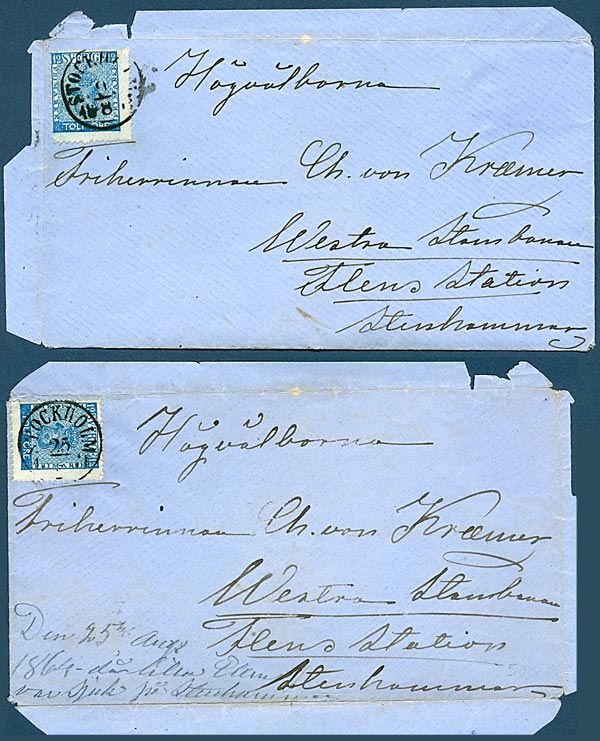 12 SVERIGE 12
STOCKH
TOLF
Högvälborna
Friherrinnan Ch. von Kræmer
Westra Stambanan
Flens Station
Stenhammar
STOCKHOLM
25
Högvälborna
Friherrinnan Ch. von Kræmer
Westra Stambanan
Flens Station
Stenhammar
Den 25te Augs
1864 - då lilla Elen
var sjuk på Stenhammar